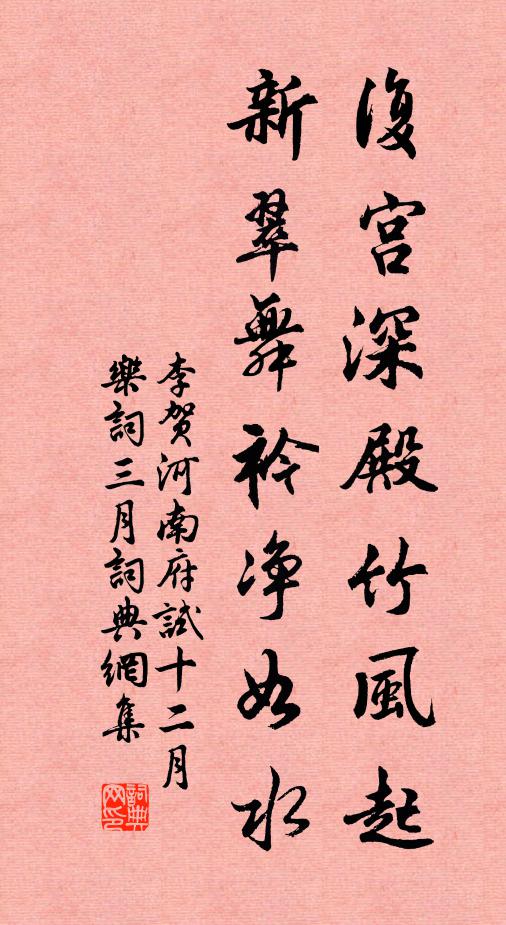 復宮深殿竹風起
新翠舞衿净如水
李賀河南府試十二月
樂詞三月詞典網集
詞典
网印